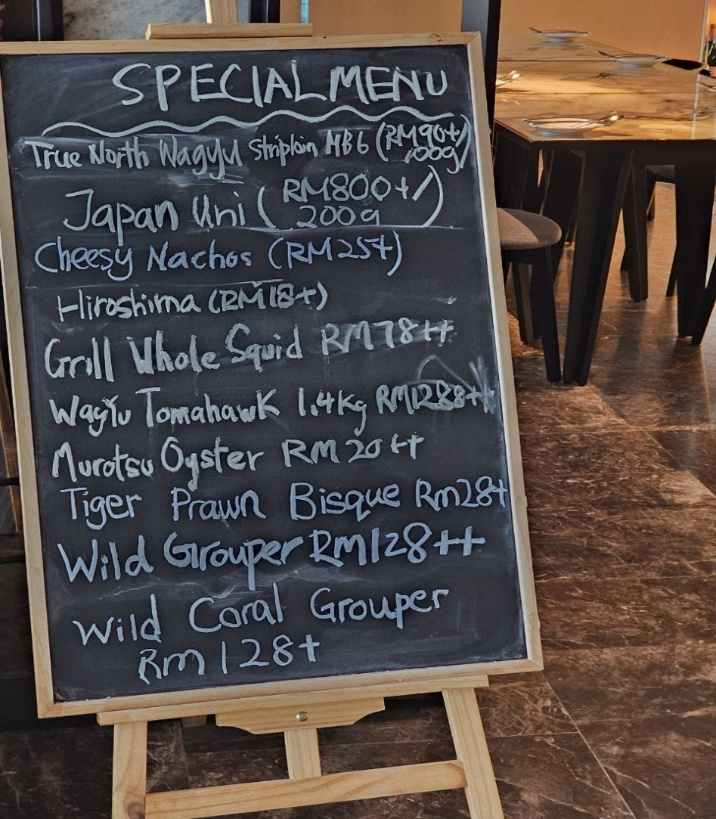 SPECIAL MENU
True North Wagyu Striploin MB6 (RM90+/100g)
Japan Uni (RM800+/200g)
Cheesy Nachos (RM25+)
Hiroshima (RM18+)
Grill Whole Squid RM78++
Wagyu Tomahawk 1.4kg RM1288++
Murotsu Oyster RM20++
Tiger Prawn Bisque Rm28+
Wild Grouper RM128++
Wild Coral Grouper
Rm128+